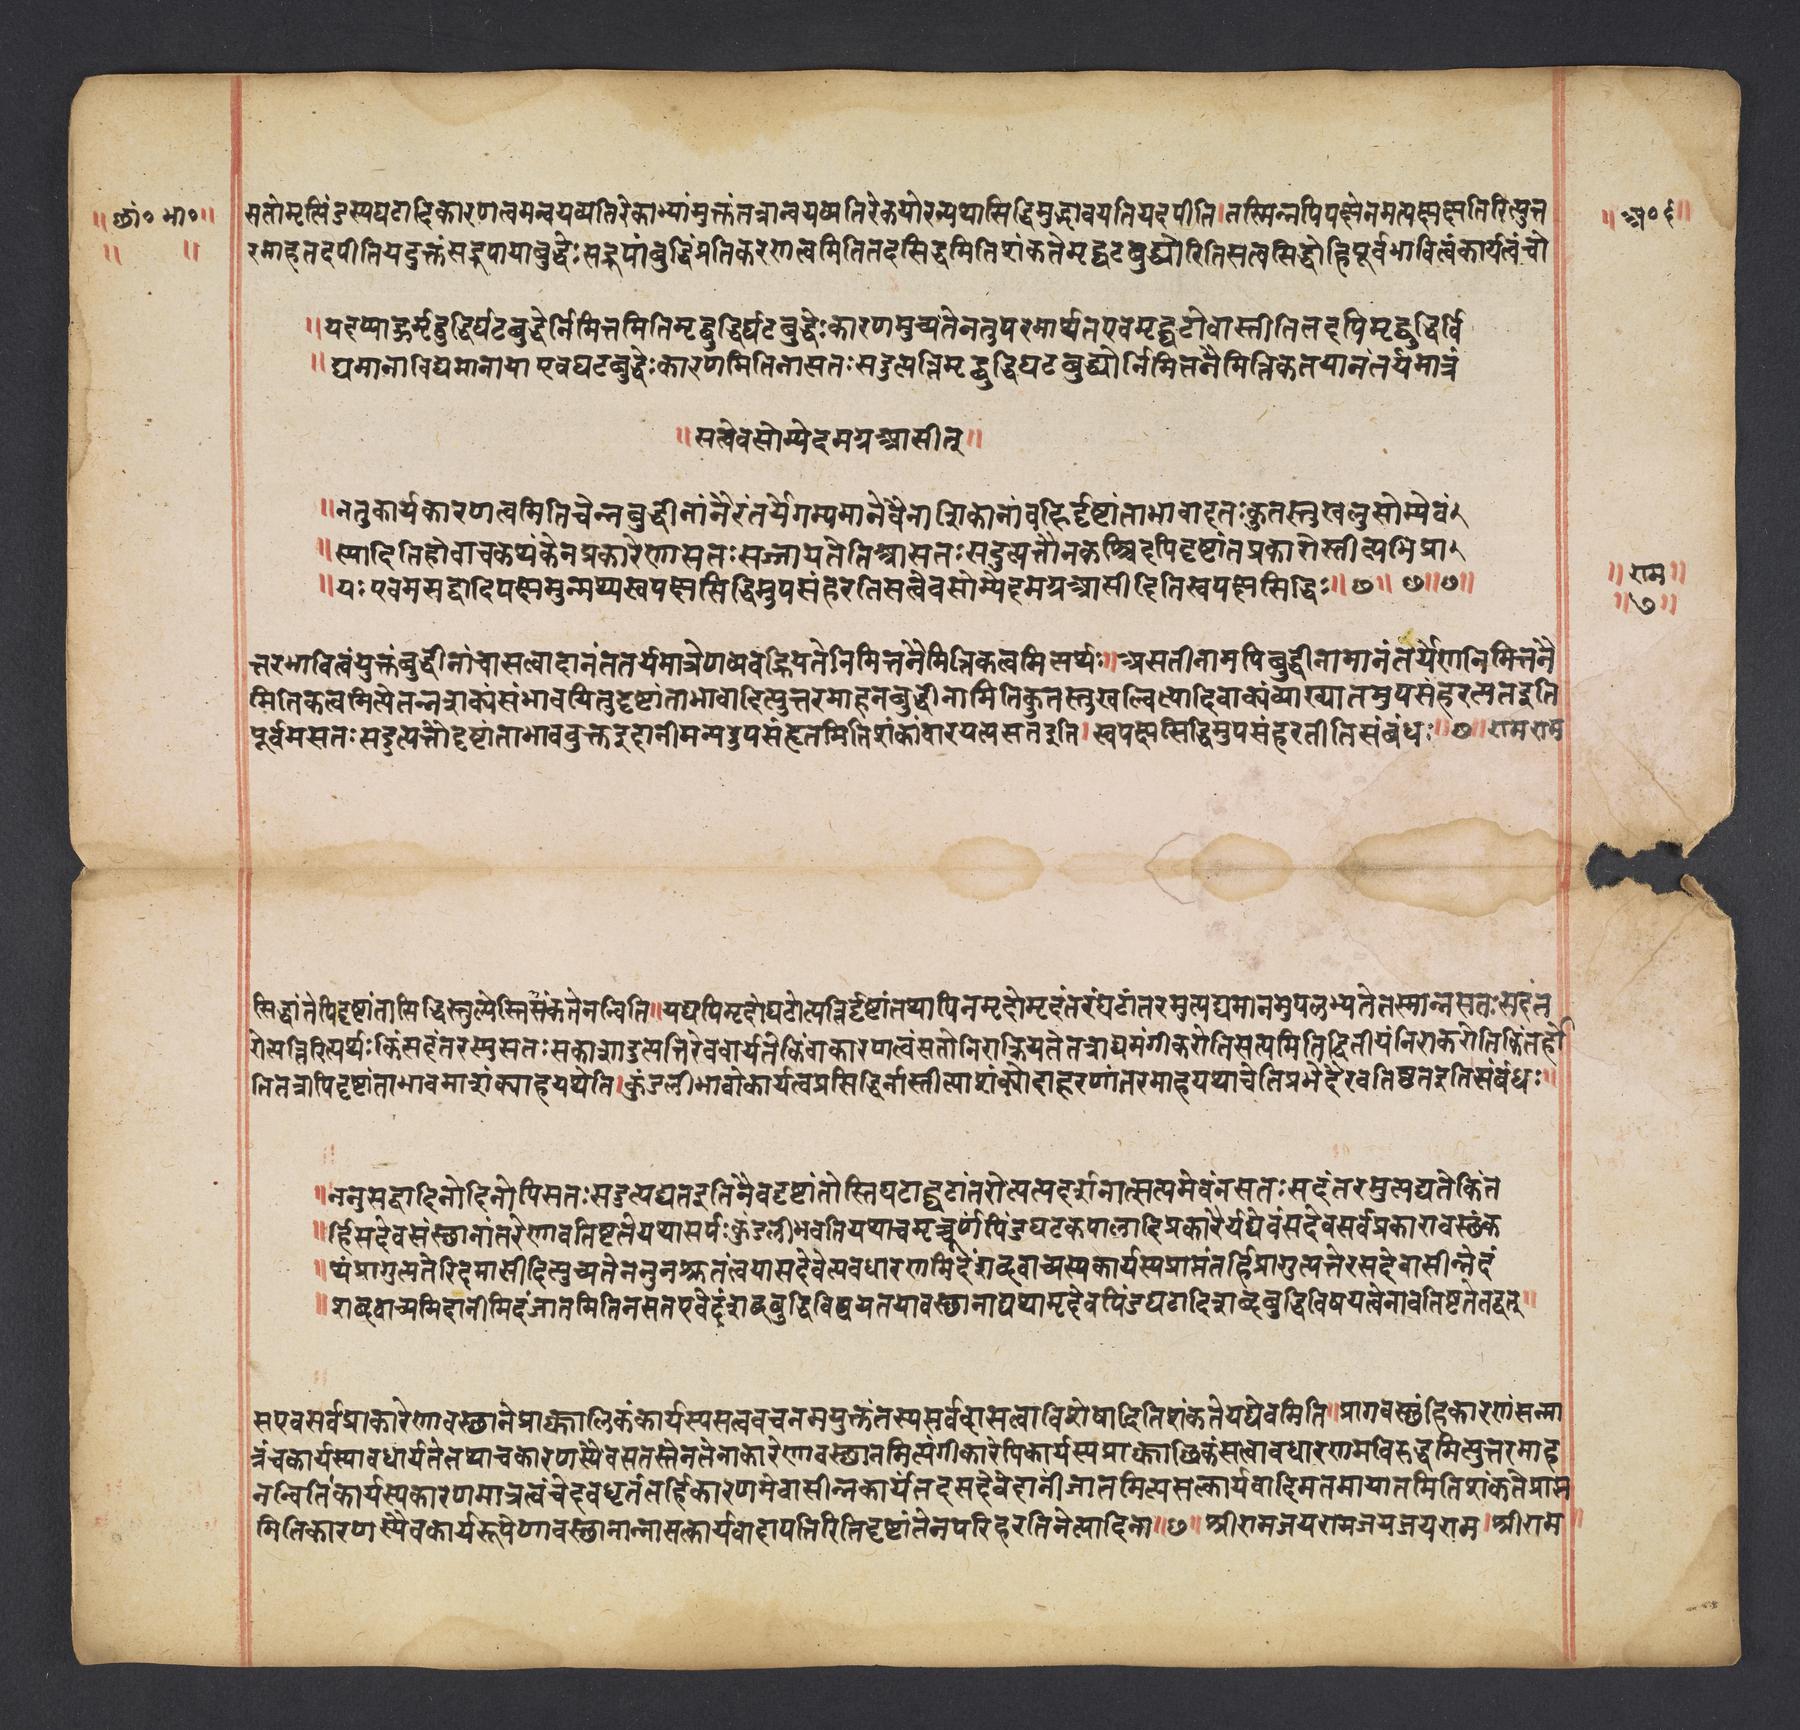 ॥छां० भा०॥
॥ ॥
॥अ०६॥
मतोमृत्पिंडस्यघटादिकारणत्वमन्वयव्यतिरेकाभ्यामुक्तंतत्रान्वयव्यतिरेकयोरन्यथासिद्धिमुद्भावयतियदपीति।तस्मिन्नपिपक्षेनमत्पक्षक्षतिरित्युत्त
रमाहतदपीतियदुक्तंसद्रूपायाबुद्धेःसद्रूपांबुद्धिंप्रतिकरणत्वमितितदसिद्धमितिशंकतेमृद्घटबुद्ध्योरितिसत्वसिद्धौहिपूर्वभावित्वंकार्यत्वंचो
॥यदप्याहुर्मृद्बुद्धिर्घटबुद्धेर्निमित्तमितिमृद्बुद्धिर्घटबुद्धेःकारणमुच्यतेनतुपरमार्थतएवमृद्घटोवास्तीतितदपिमृद्बुद्धिर्वि
॥द्यमानाविद्यमानाया एवघटबुद्धेःकारणमितिनासतःसदुत्पत्तिमृद्बुद्धिघटबुद्ध्योर्निमित्तनैमित्तिकतयानंतर्यमात्रं
॥सत्वेवसोम्येदमग्रआसीत्॥
॥नतुकार्यकारणत्वमितिचेन्नबुद्धीनांनैरंतर्येगम्यमानेवैनाशिकानांबहिर्दृष्टांताभावादतःकुतस्तुखलुसोम्यैवं
॥स्यादितिहोवाचकथंकेनप्रकारेणासतःसज्जायेतेतिआसतःसदुत्पत्तौनकश्चिदपिदृष्टांतप्रकारोस्तीत्यभिप्रा
॥यःएवमसद्वादिपक्षमुन्मथ्यस्वपक्षसिद्धिमुपसंहरतिसत्वेवसोम्येदमग्रआसीदितिस्वपक्षसिद्धिः॥७॥ ७॥७॥
॥राम॥
॥७॥
त्तरभावित्वंयुक्तंबुद्धीनांचासत्वादानंतर्यमात्रेणव्यवह्रियतेनिमित्तनैमित्तिकत्वमित्यर्थः॥असतीनामपिबुद्धीनामानंतर्येणनिमित्तनै
मितिकत्वमित्येतन्नशक्यंसंभावयितुदृष्टांताभावादित्युत्तरमाहनबुद्धीनामितिकुतस्तुखल्वित्यादिवाक्यंव्याख्यातमुपसंहरत्यतइति
पूर्वमसतःसदुत्पत्तौदृष्टांताभावउक्तइदानीमन्यदुपसंहृतमितिशंकांवारयत्यसतइति।स्वपक्षसिद्धिमुपसंहरतीतिसंबंधः॥७॥रामराम
सिद्धांतेपिदृष्टांतासिद्धिस्तुल्येतिशंकतेनन्विति॥यद्यपिमृदोघटोत्पत्तिर्दृष्टांतथापिनमृदोमृदंतरंघटांतरमुत्पद्यमानमुपलभ्यतेतस्मान्नसतःसदंत
रोत्पत्तिरित्यर्थःकिंसदंतरस्यसतःसकाशादुत्पत्तिरेववार्यतेकिंवाकारणत्वंसतोनिराक्रियतेतत्राद्यमंगीकरोतिसत्यमितिद्वितीयंनिराकरोतिकिंतर्ही
तितत्रापिदृष्टांताभावमाशंक्याहयथेति।कुंडलीभावोकार्यत्वप्रसिद्धिर्नास्तीत्याशंक्योदाहरणांतरमाहयथाचेतिप्रभेदैरवतिष्ठतइतिसंबंधः॥
॥ननुसद्वादिनोदिनोपिसतःसदुत्पद्यतइतिनैवदृष्टांतोस्तिघटाद्घटांतरोत्पत्यदर्शनात्सत्यमेवंनसतःसदंतरमुत्पद्यतेकिंत
॥र्हिसदेवसंस्थानांतरेणावतिष्टतेयथासर्पःकुंडलीभवतियथाचमृच्चूर्णपिंडघटकपालादिप्रकारैर्यद्येवंसदेवसर्वप्रकारावस्थंक
॥थंप्रागुत्पत्तेरिदमासीदित्युच्यतेननुनश्रुतंत्वयासदेवेत्यवधारणमिदंशब्दवाच्यस्यकार्यस्यप्राप्तंतर्हिप्रागुत्पत्तेरसदेवासीन्नेदं
॥शब्दवाच्यमिदानीमिदंजातमितिनसतएवेदंशब्दबुद्धिविषयतयावस्थानाद्यथामृदेवपिंडघटादिशब्दबुद्धिविषयत्वेनावतिष्टतेतद्वत्॥
सएवसर्वप्राकारेणावस्थानेप्राक्कालिकंकार्यस्यसत्ववचनमयुक्तंतस्यसर्वत्रासत्वाविशेषादितिशंकतेयद्येवमिति॥प्रागवस्थंहिकारणंसन्मा
त्रंचकार्यस्यावधार्यतेतथाचकारणस्यैवसतस्तेनतेनाकारेणावस्थानमित्यंगीकारेपिकार्यस्यप्राक्कालिकंसत्वावधारणमविरुद्धमित्युत्तरमाह
नन्वितिकार्यस्यकारणमात्रत्वंचेदवधृतंतर्हिकारणमेवासीन्नकार्यंतदसदेवेदानींजातमित्यसत्कार्यवादिमतमायातमितिशंकतेप्राप्त
मितिकारणस्यैवकार्यरूपेणावस्थानान्नासत्कार्यवादापत्तिरितिदृष्टांतेनपरिहरतिनेत्यादिना॥७॥श्रीरामजयरामजयजयराम।श्रीराम॥